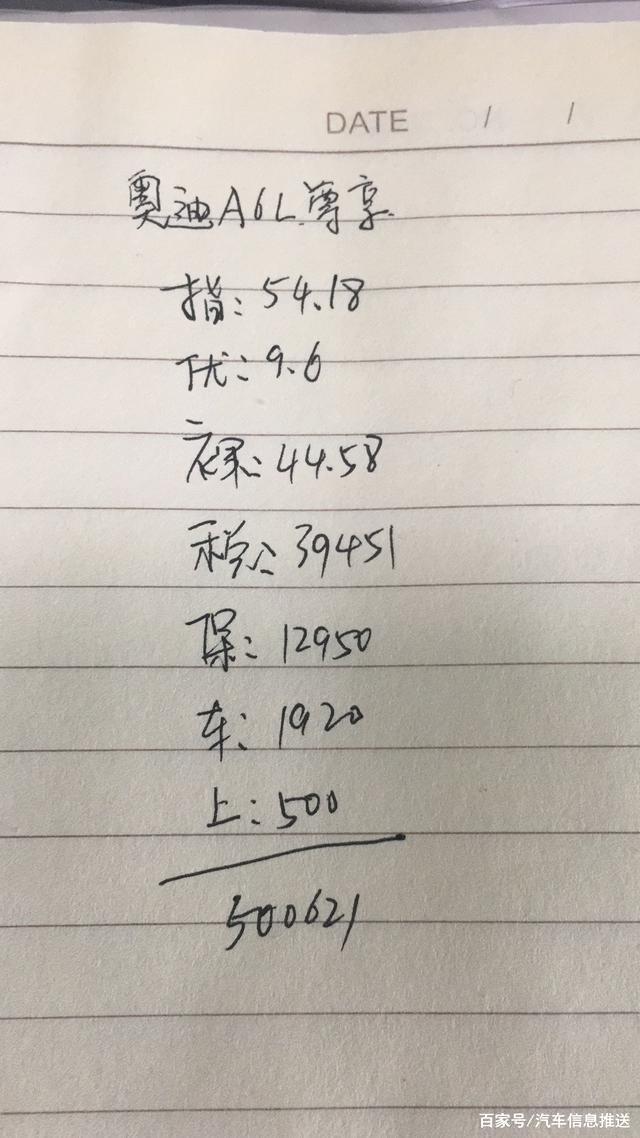 DATE / /
奥迪A6L尊享
指:54.18
优:9.6
裸:44.58
税:39451
保:12950
车:1920
上:500
500621
百家号/汽车信息推送